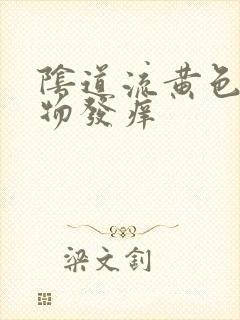 陰道流黄色
物發痒
梁文釗